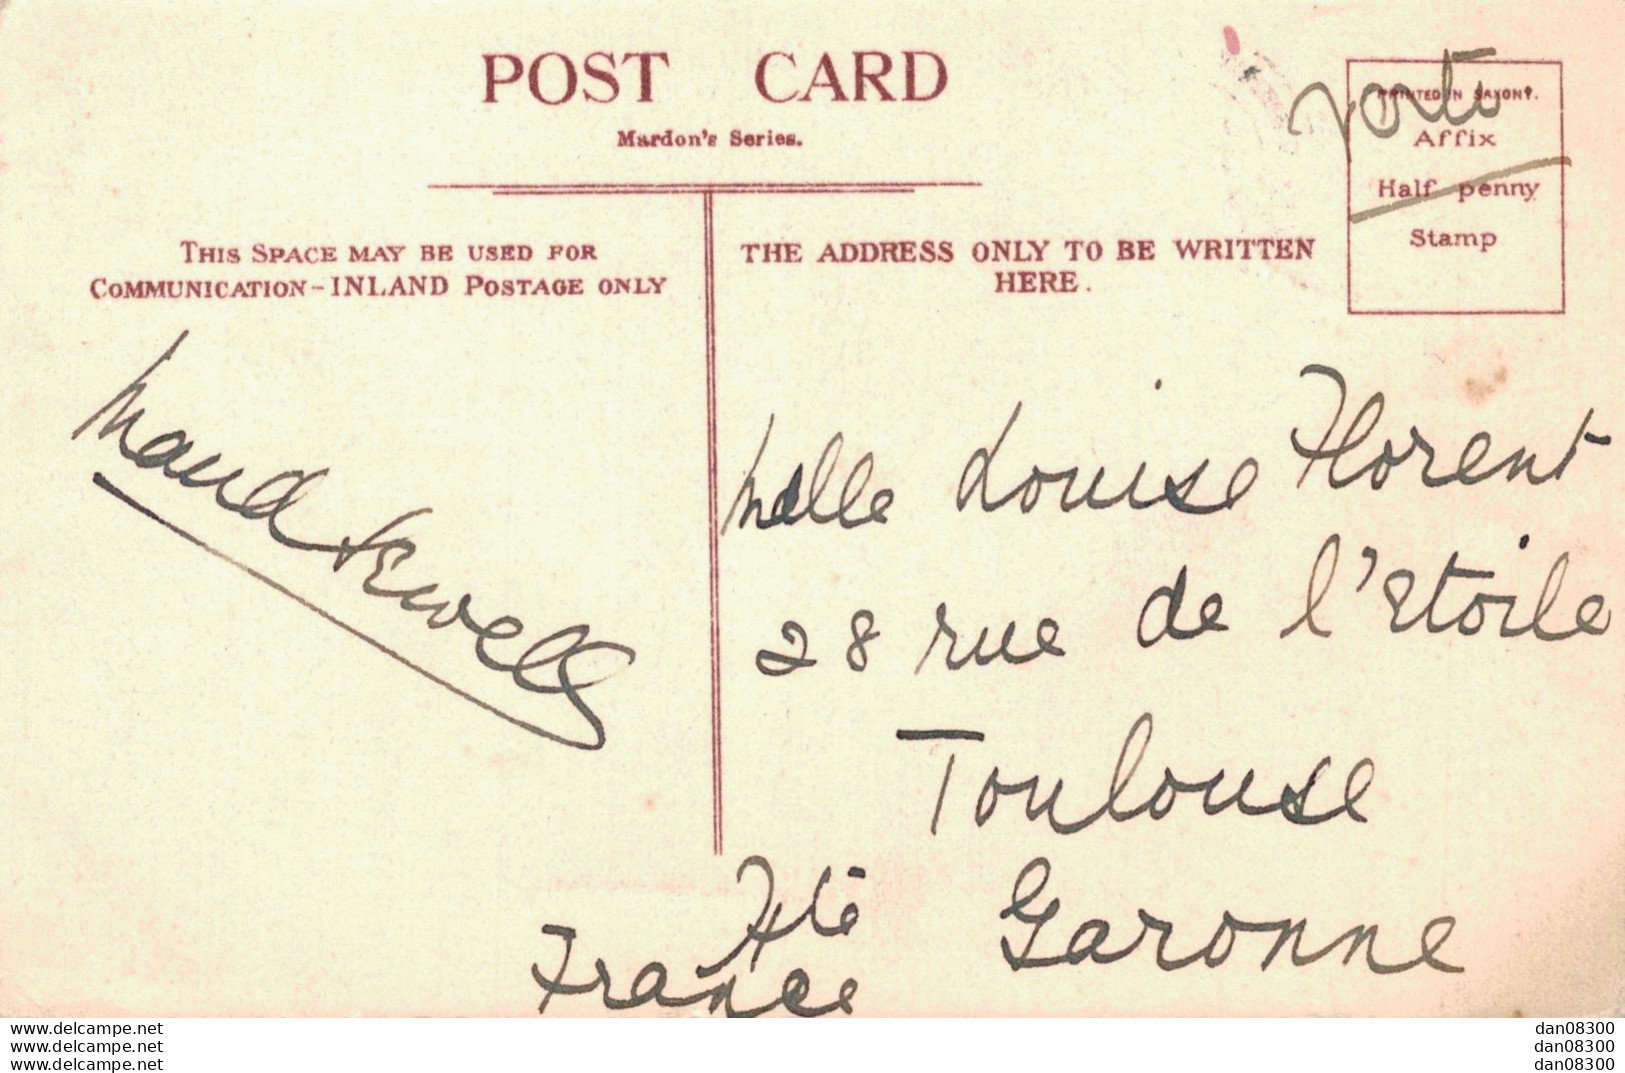 POST CARD
Mardon's Series.
PRINTED IN SAXONY.
Affix
Half penny
Stamp
THIS SPACE MAY BE USED FOR
COMMUNICATION - INLAND POSTAGE ONLY
THE ADDRESS ONLY TO BE WRITTEN
HERE.
Maud Sewell
Melle Louise Florent
28 rue de l'Etoile
Toulouse
Hte Garonne
France
www.delcampe.net
www.delcampe.net
www.delcampe.net
dan08300
dan08300
dan08300